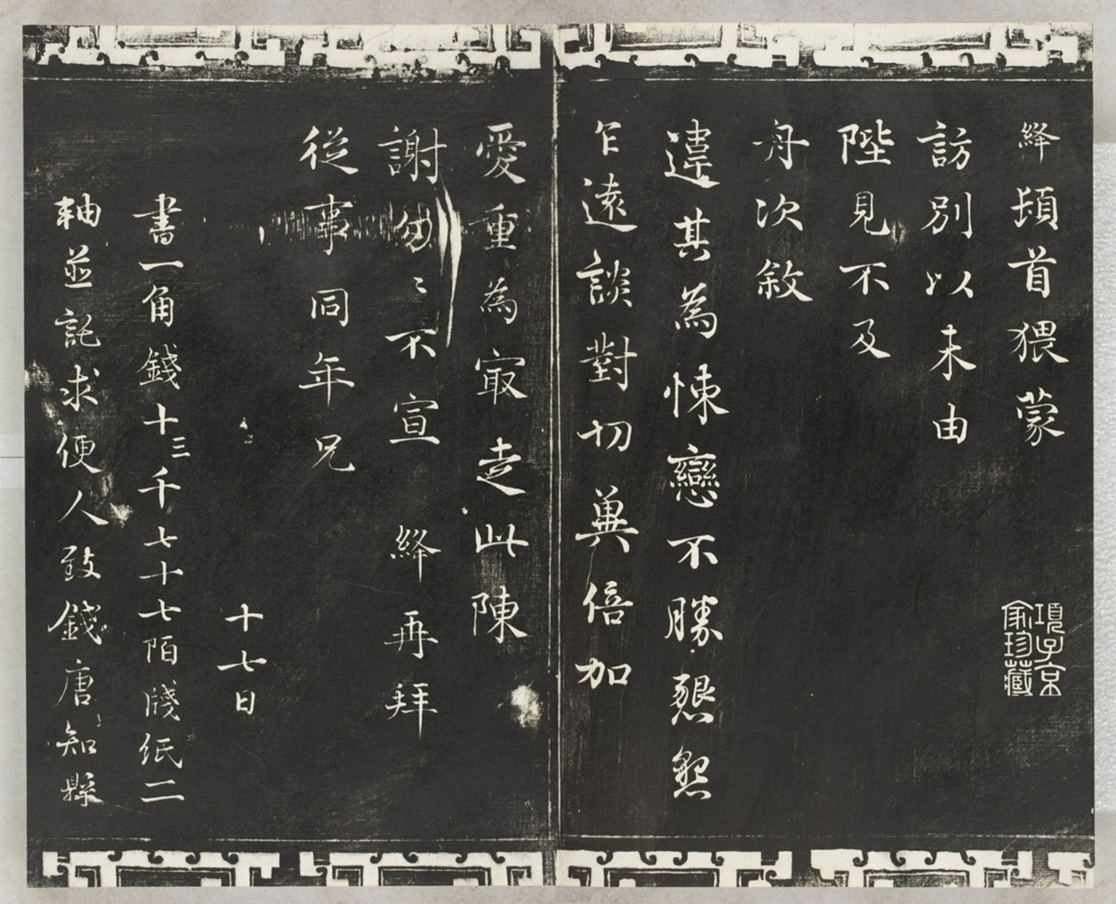 絳頓首猥蒙
訪別以未由
陛見不及
舟次敘
違其為悚戀不勝懇懇
乍遠談對切兾倍加
愛重為㝡走此陳
謝匆〻不宣 絳再拜
從事同年兄
十七日
書一角錢十三千七十七陌牋紙二
軸並託求便人致錢唐知縣
項子京
家珍藏